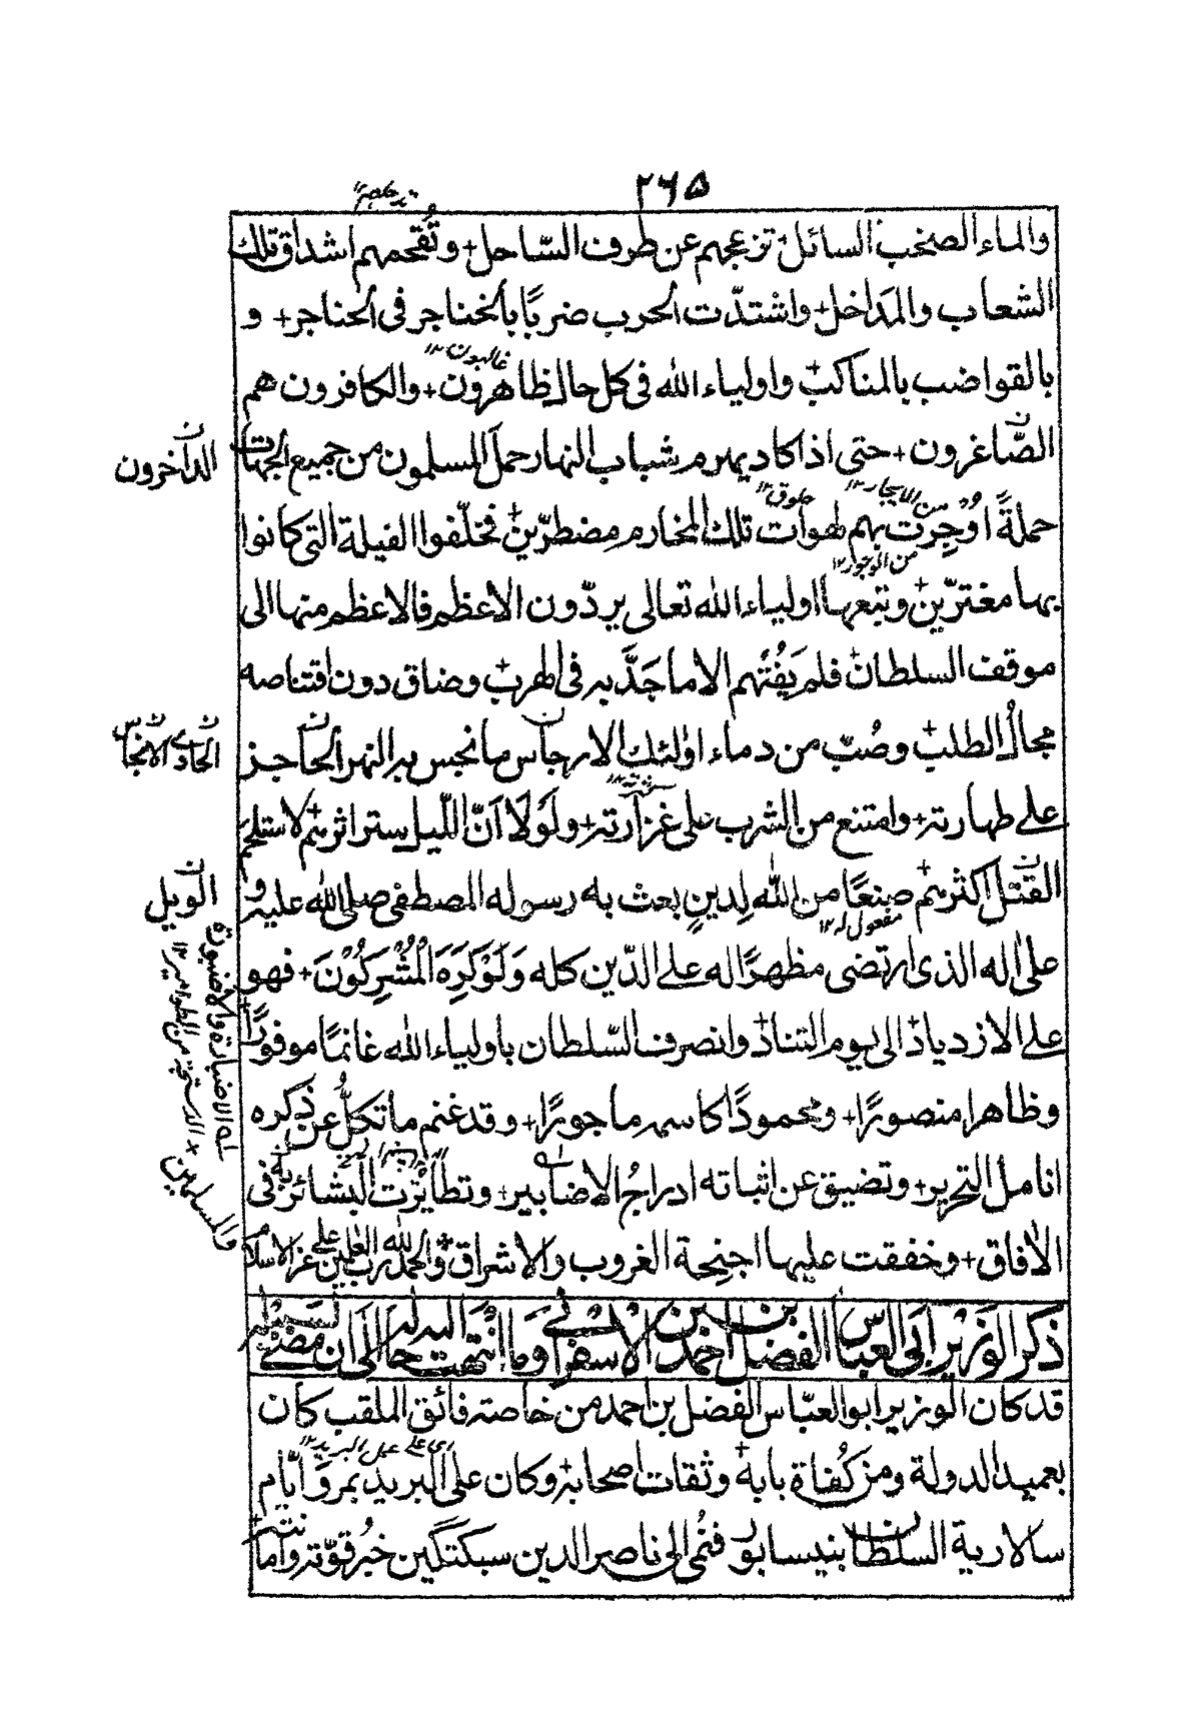 ۲۶۵
والماء الصخب السائل+ تزعجهم عن طرف السّاحل+ وتُقحمهم اشداق تلك
الشعاب والمَداخل+ واشتدّت الحرب ضربًا بالخناجر فى الحناجر+ و
غالبون ۱۲
بالقواضب بالمناكب+ واولياء الله فى كل حال ظاهرون+ والكافرون هم
الصّاغرون+ حتى اذا كاد يهرم شباب النهار حمل المسلمون من جميع الجهات
الداخرون
من الايجار ۱۲ حلوق ۱۲
حملةً اُوْجِرَت بهم لهوات تلك المخارم مضطرّين+ فخلّفوا الفيلة التى كانوا
من الوجور ۱۲
بها مغترّين+ وتبعها اولياء الله تعالى يردّون الاعظم فالاعظم منها الى
موقف السلطان+ فلم يَفُتهم الا ما جَدَّ به فى الهرب+ وضاق دون اقتناصه
مجال الطلب+ وصُبّ من دماء اولئك الارجاس ما نجس به النهر الحاجز
الحادى الانجاس
على طهارته+ وامتنع من الشرب على غزارته+ ولَوْلَا اَنّ اللّيل ستر اثرهم+ لاستلحم
القتل اكثرهم+ صنعًا من الله لِدينٍ بعث به رسوله المصطفى صلى الله عليه و
الويل
مفعول له ۱۲
على اله الذى ارتضى مظهرًا له على الدّين كله وَلَوْكَرِهَ الْمُشْرِكُوْنَ+ فهو
على الازدياد+ الى يوم التناد+ وانصرف السّلطان باولياء الله غانمًا موفورًا+
وظاهرا منصورًا+ ومحمودًا كاسمه ماجورًا+ وقد غنم ما تكلُّ عن ذكره
انامل التحرير+ وتضيق عن اثباته ادراجُ الاضابير+ وتطايرت البشائر به فى
الأفاق+ وخفقت عليها اجنحة الغروب والاشراق+ والحمد لله رب العلمين على عز الاسلام
والمسلمين
ذكر الوزير ابى العباس الفضل بن احمد الاسفرائنى وما انتهت اليه حاله الى ان مضى لسبيله
قد كان الوزير ابو العبّاس الفضل بن احمد من خاصته فائق الملقب كان
اى على عمل البريد ۱۲
بعميد الدولة ومن كُفاة بابه+ وثقات اصحابه+ وكان على البريد بمرو ايّام
سالارية السلطان بنيسابور فنُمى الى ناصر الدين سبكتگين خبُر قوّته وامانته+